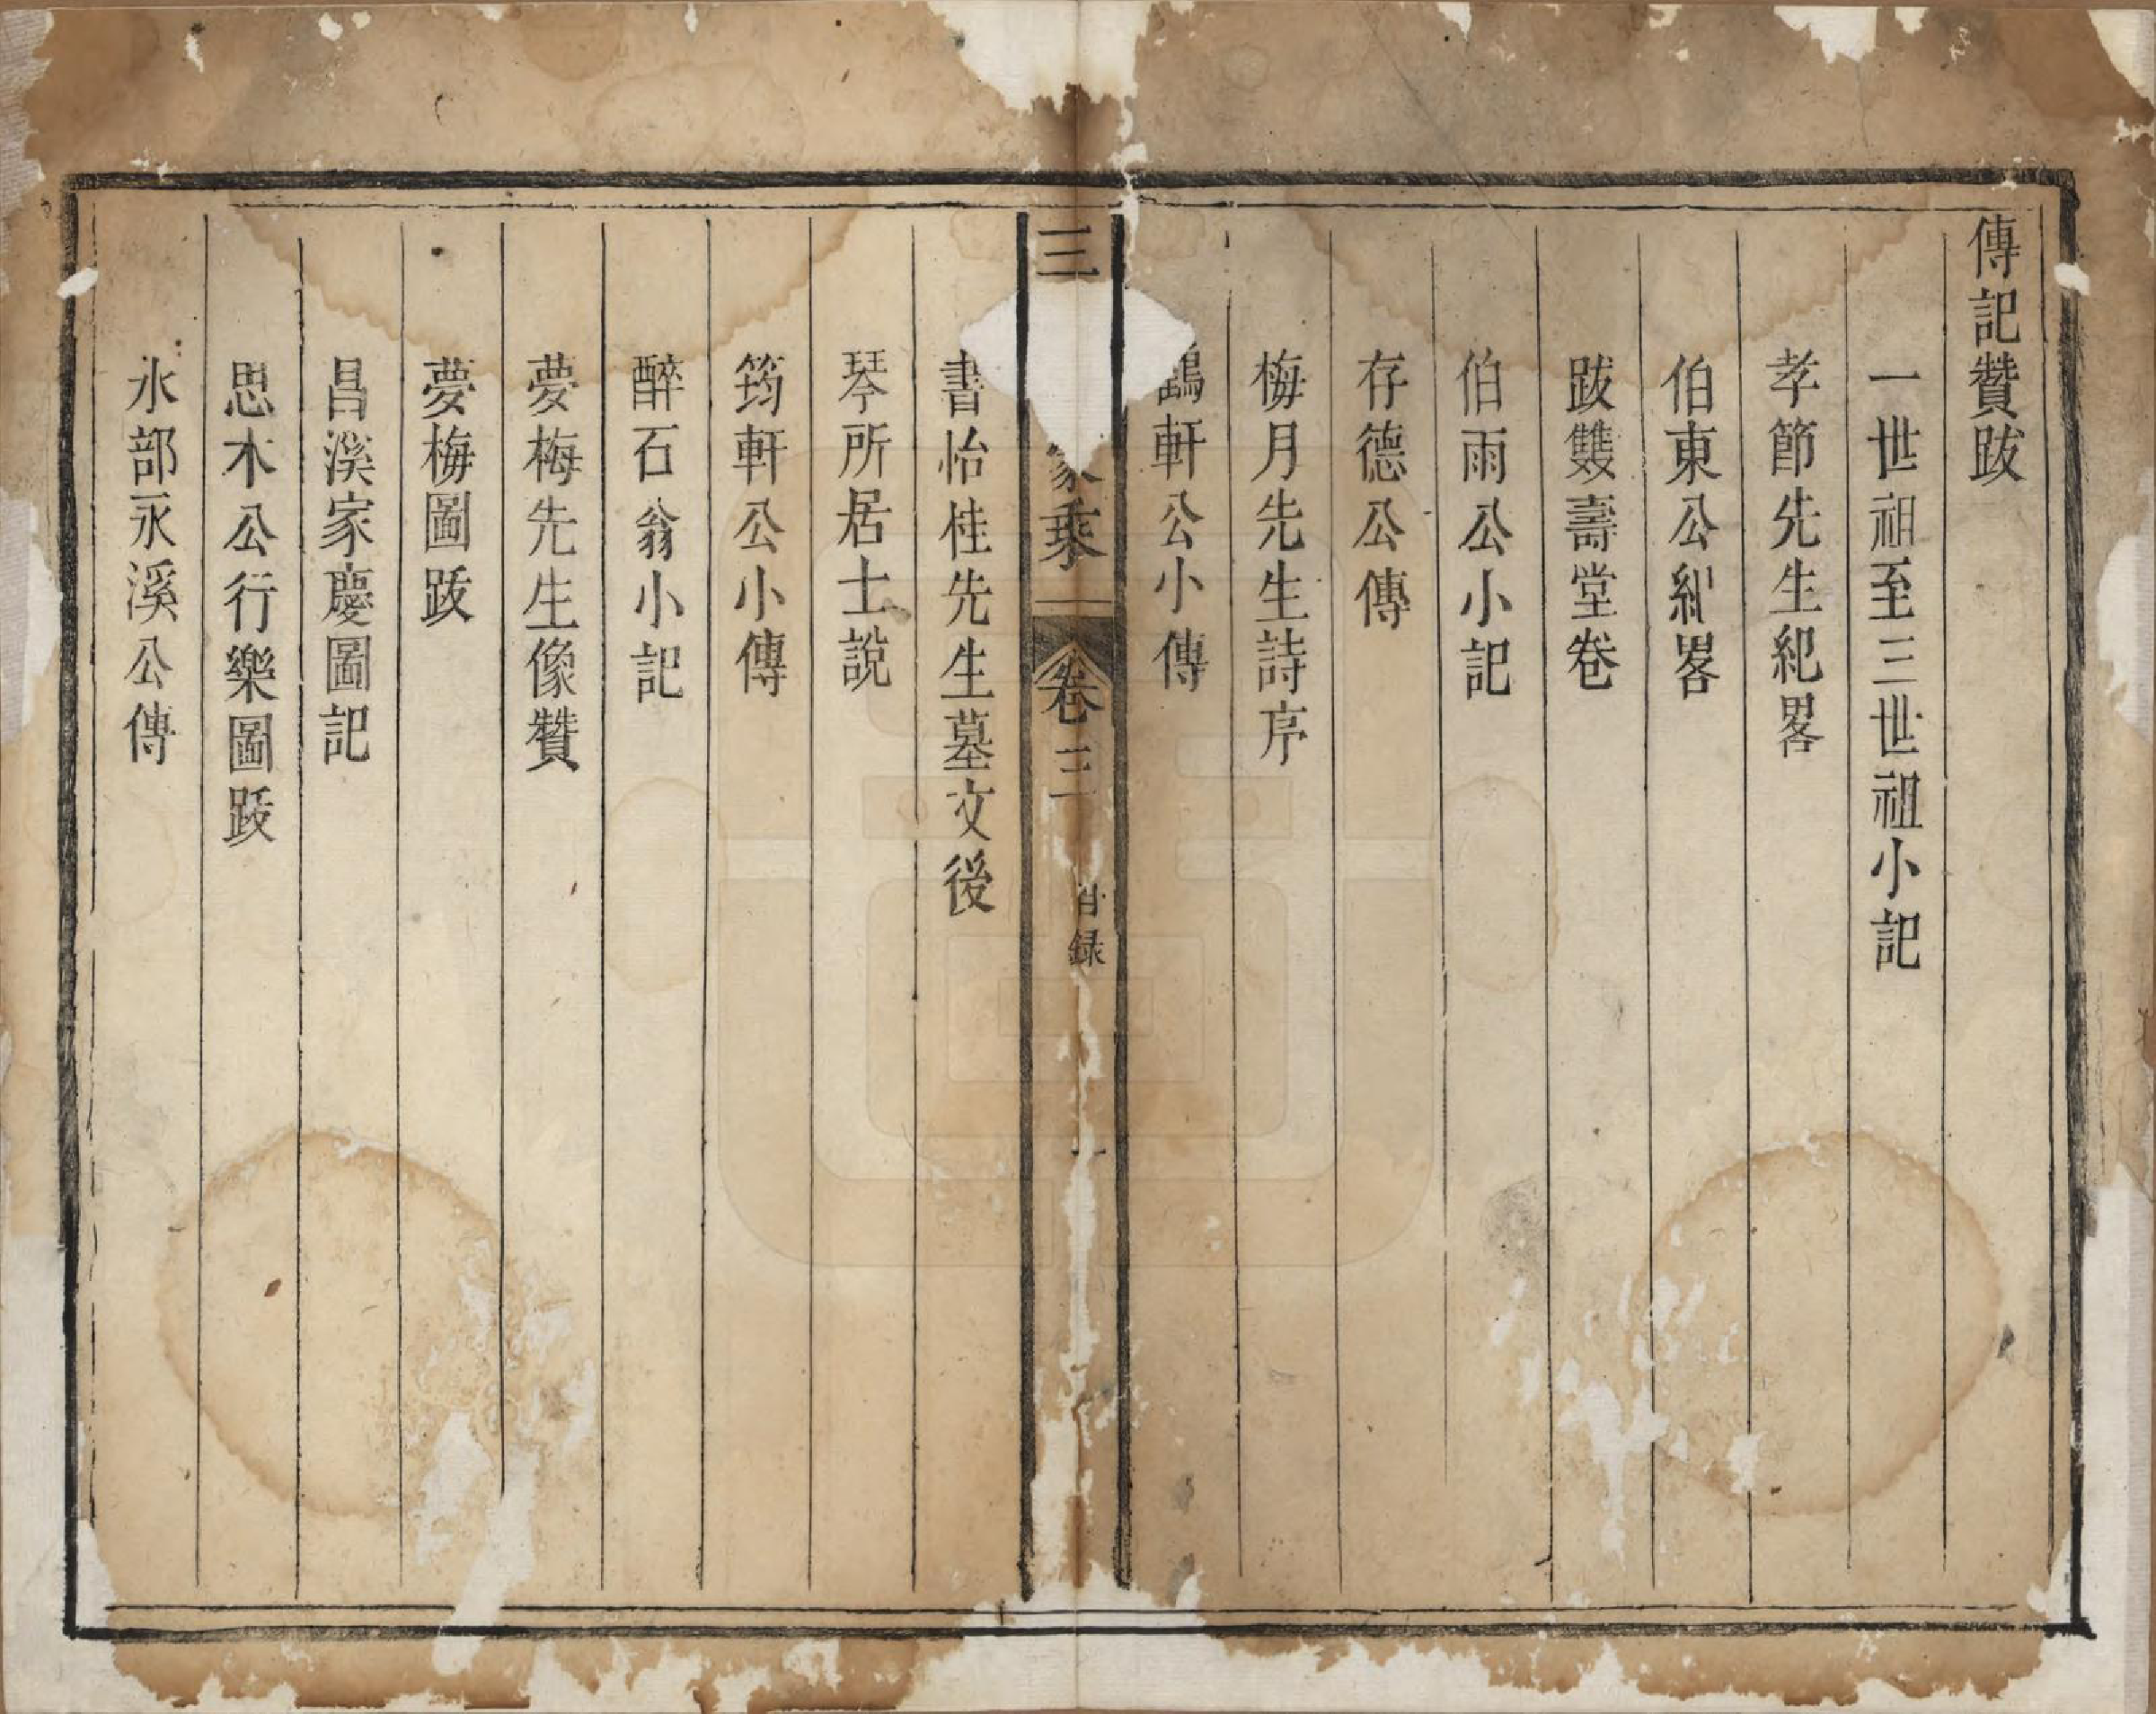 傳記贊跋
一世祖至三世祖小記
孝節先生紀畧
伯東公紀畧
跋雙壽堂卷
伯雨公小記
存德公傳
梅月先生詩序
鶴軒公小傳
三
家乘
卷三
目錄
一
書怡桂先生墓文後
琴所居士說
筠軒公小傳
醉石翁小記
夢梅先生像贊
夢梅圖跋
昌溪家慶圖記
思木公行樂圖跋
水部永溪公傳